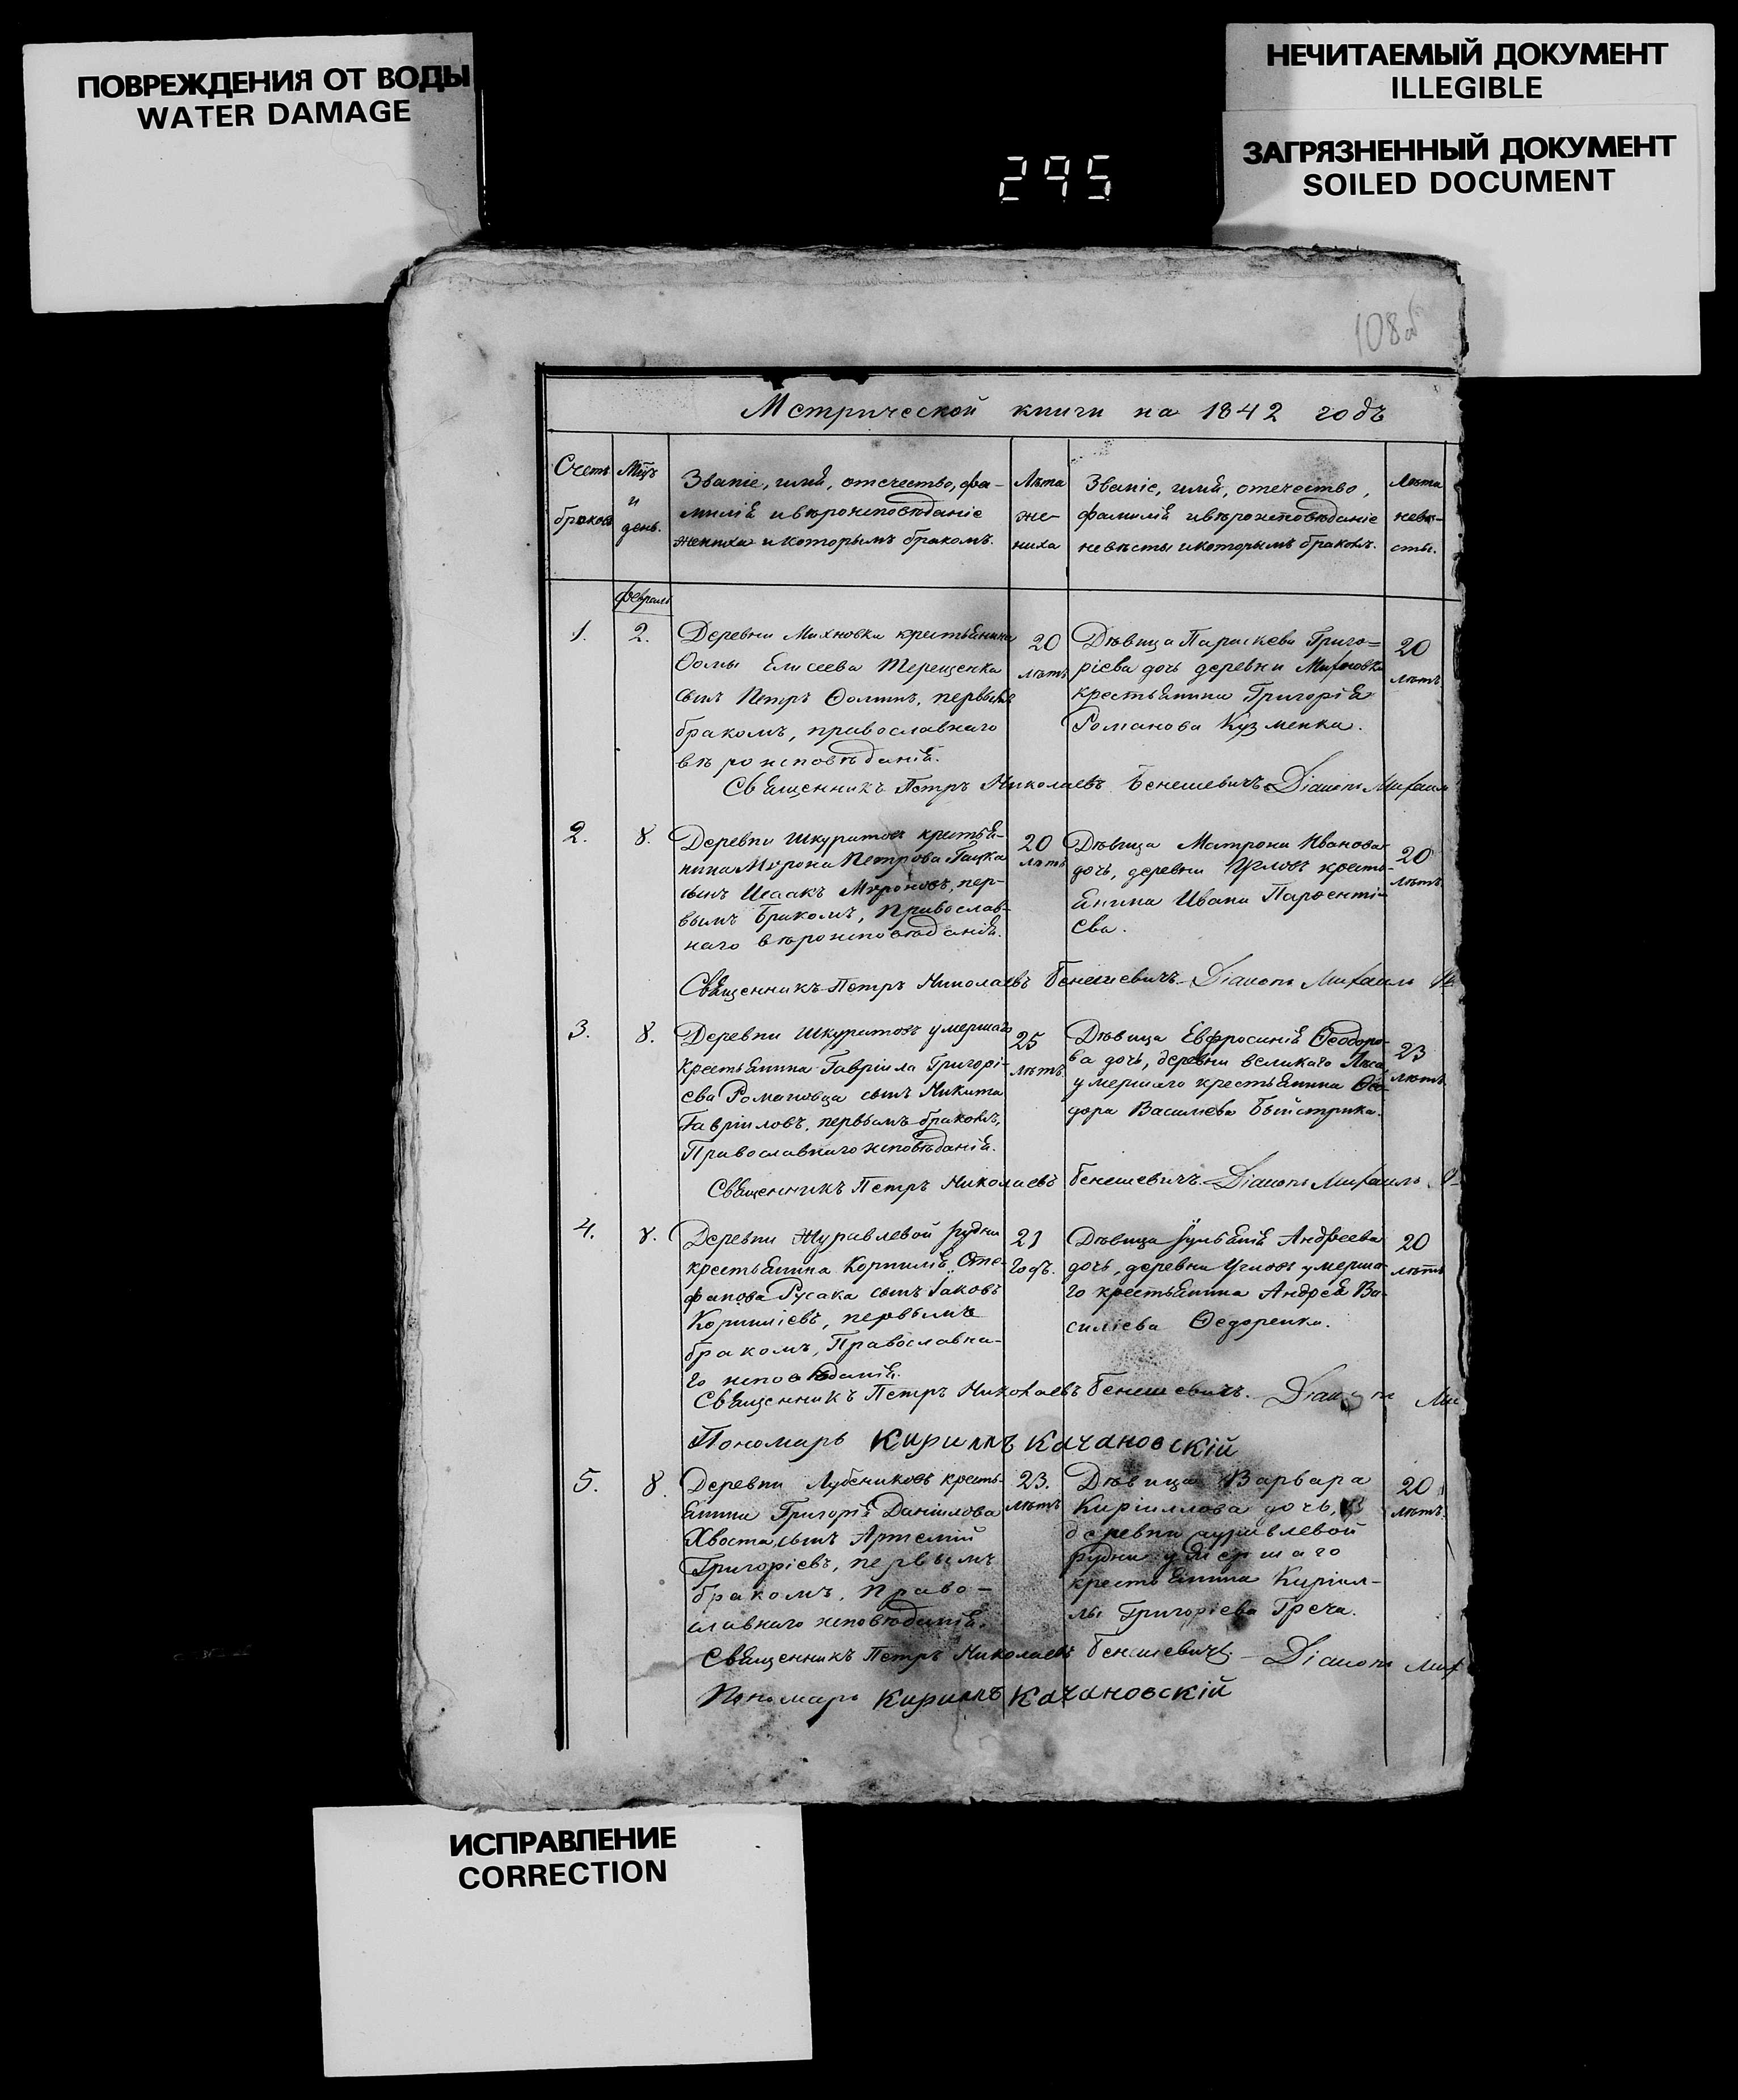 ПОВРЕЖДЕНИЯ ОТ ВОДЫ
WATER DAMAGE
НЕЧИТАЕМЫЙ ДОКУМЕНТ
ILLEGIBLE
ЗАГРЯЗНЕННЫЙ ДОКУМЕНТ
SOILED DOCUMENT
295
108
Метрической книги на 1842 годъ
Счетъ браковъ
Мцъ и день.
Званіе, имя, отечество, фа-
милія и вѣроисповѣданіе
жениха и которымъ бракомъ.
Лѣта
же-
ниха
Званіе, имя, отечество,
фамилія и вѣроисповѣданіе
невѣсты и которымъ бракомъ.
Лѣта
невѣ-
сты.
Февраль
1.
2.
Деревни Михновки крестьянина
Ѳомы Елисеева Терещенка
сынъ Петръ Ѳоминъ, первымъ
бракомъ, православнаго
вѣроисповѣданія.
20
лѣтъ
Дѣвица Параскева Григо-
ріева дочь деревни Михновки
крестьянина Григорія
Романова Кузменка.
20
лѣтъ
Священникъ Петръ Николаевъ Бенешевичъ. Діаконъ Михаилъ
2.
8.
Деревни Шкуратовъ крестья-
нина Мирона Петрова Гацка
сынъ Исаакъ Мироновъ, пер-
вымъ бракомъ, Православ-
наго вѣроисповѣданія.
20
лѣтъ
Дѣвица Матрона Иванова
дочь, деревни Угловъ кресть-
янина Ивана Парѳентіе-
ева.
20
лѣтъ
Священникъ Петръ Николаевъ Бенешевичъ. Діаконъ Михаилъ
3.
8.
Деревни Шкуратовъ умершаго
крестьянина Гавріила Григорі-
ева Романовца сынъ Никита
Гавріиловъ, первымъ бракомъ,
Православнаго исповѣданія.
25
лѣтъ
Дѣвица Евфросинія Ѳеодоро-
ва дочь, деревни великаго Лѣса
умершаго крестьянина Ѳео-
дора Василіева Быстрика.
23
лѣтъ
Священникъ Петръ Николаевъ Бенешевичъ. Діаконъ Михаилъ
4.
8.
Деревни Журавлевой рудни
крестьянина Корнилія Сте-
фанова Русака сынъ Іаковъ
Корниліевъ, первымъ
бракомъ, Православна-
го исповѣданія.
21
годъ.
Дѣвица Іуліанія Андреева
дочь, деревни Угловъ умерша-
го крестьянина Андрея Ва-
силіева Ѳедоренка.
20
лѣтъ
Священникъ Петръ Николаевъ Бенешевичъ. Діаконъ Ми
Пономарь Кириллъ Качановскій
5.
8.
Деревни Лубениковъ кресть-
янина Григорія Даніилова
Хвоста, сынъ Артемій
Григоріевъ, первымъ
бракомъ, Право-
славнаго исповѣданія.
23.
лѣтъ
Дѣвица Варвара
Кириллова дочь,
деревни журавлевой
рудни умершаго
крестьянина Кирил-
лы Григоріева Греча.
20
лѣтъ.
Священникъ Петръ Николаевъ Бенешевичъ. Діаконъ Мих
Пономарь Кириллъ Качановскій
ИСПРАВЛЕНИЕ
CORRECTION